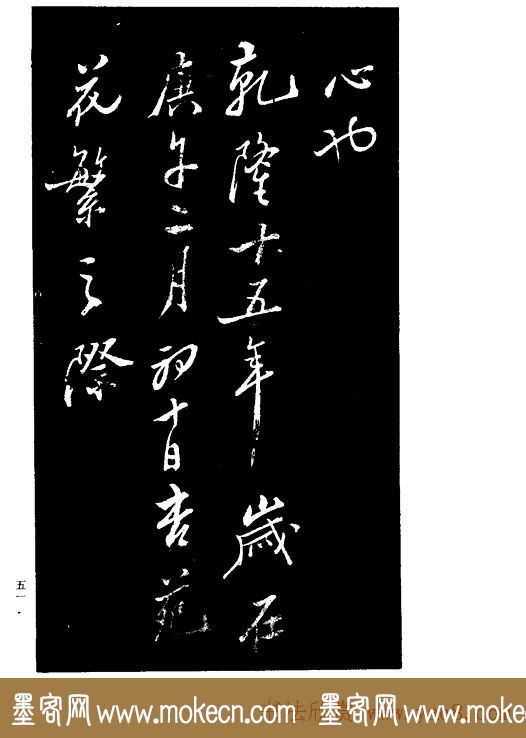 心也
乾隆十五年歲在
庚午二月初十日杏苑
花繁之際
五一
墨客网 www.mokecn.com 墨客网 www.mokecn.com